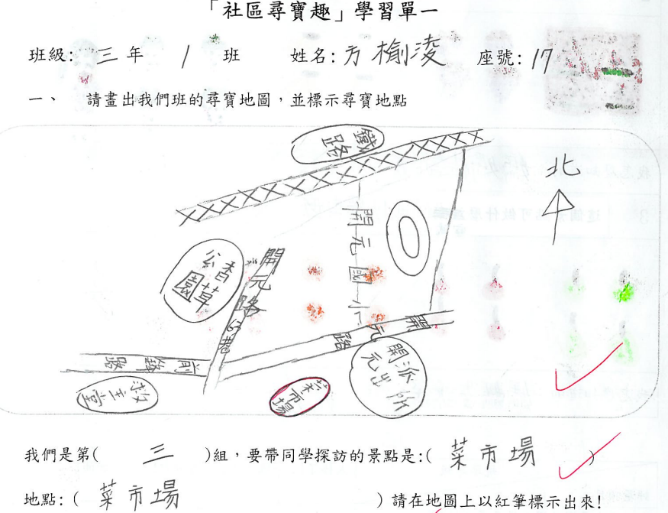 「社區尋寶趣」學習單一
班級: 三 年 1 班 姓名: 方榆淩 座號: 17
一、 請畫出我們班的尋寶地圖，並標示尋寶地點
鐵路
北
開元國小
香草公園
開元路
開元路
前鋒路
救主堂
菜市場
開元派出所
我們是第( 三 )組，要帶同學探訪的景點是:( 菜市場 )
地點: ( 菜市場 ) 請在地圖上以紅筆標示出來!